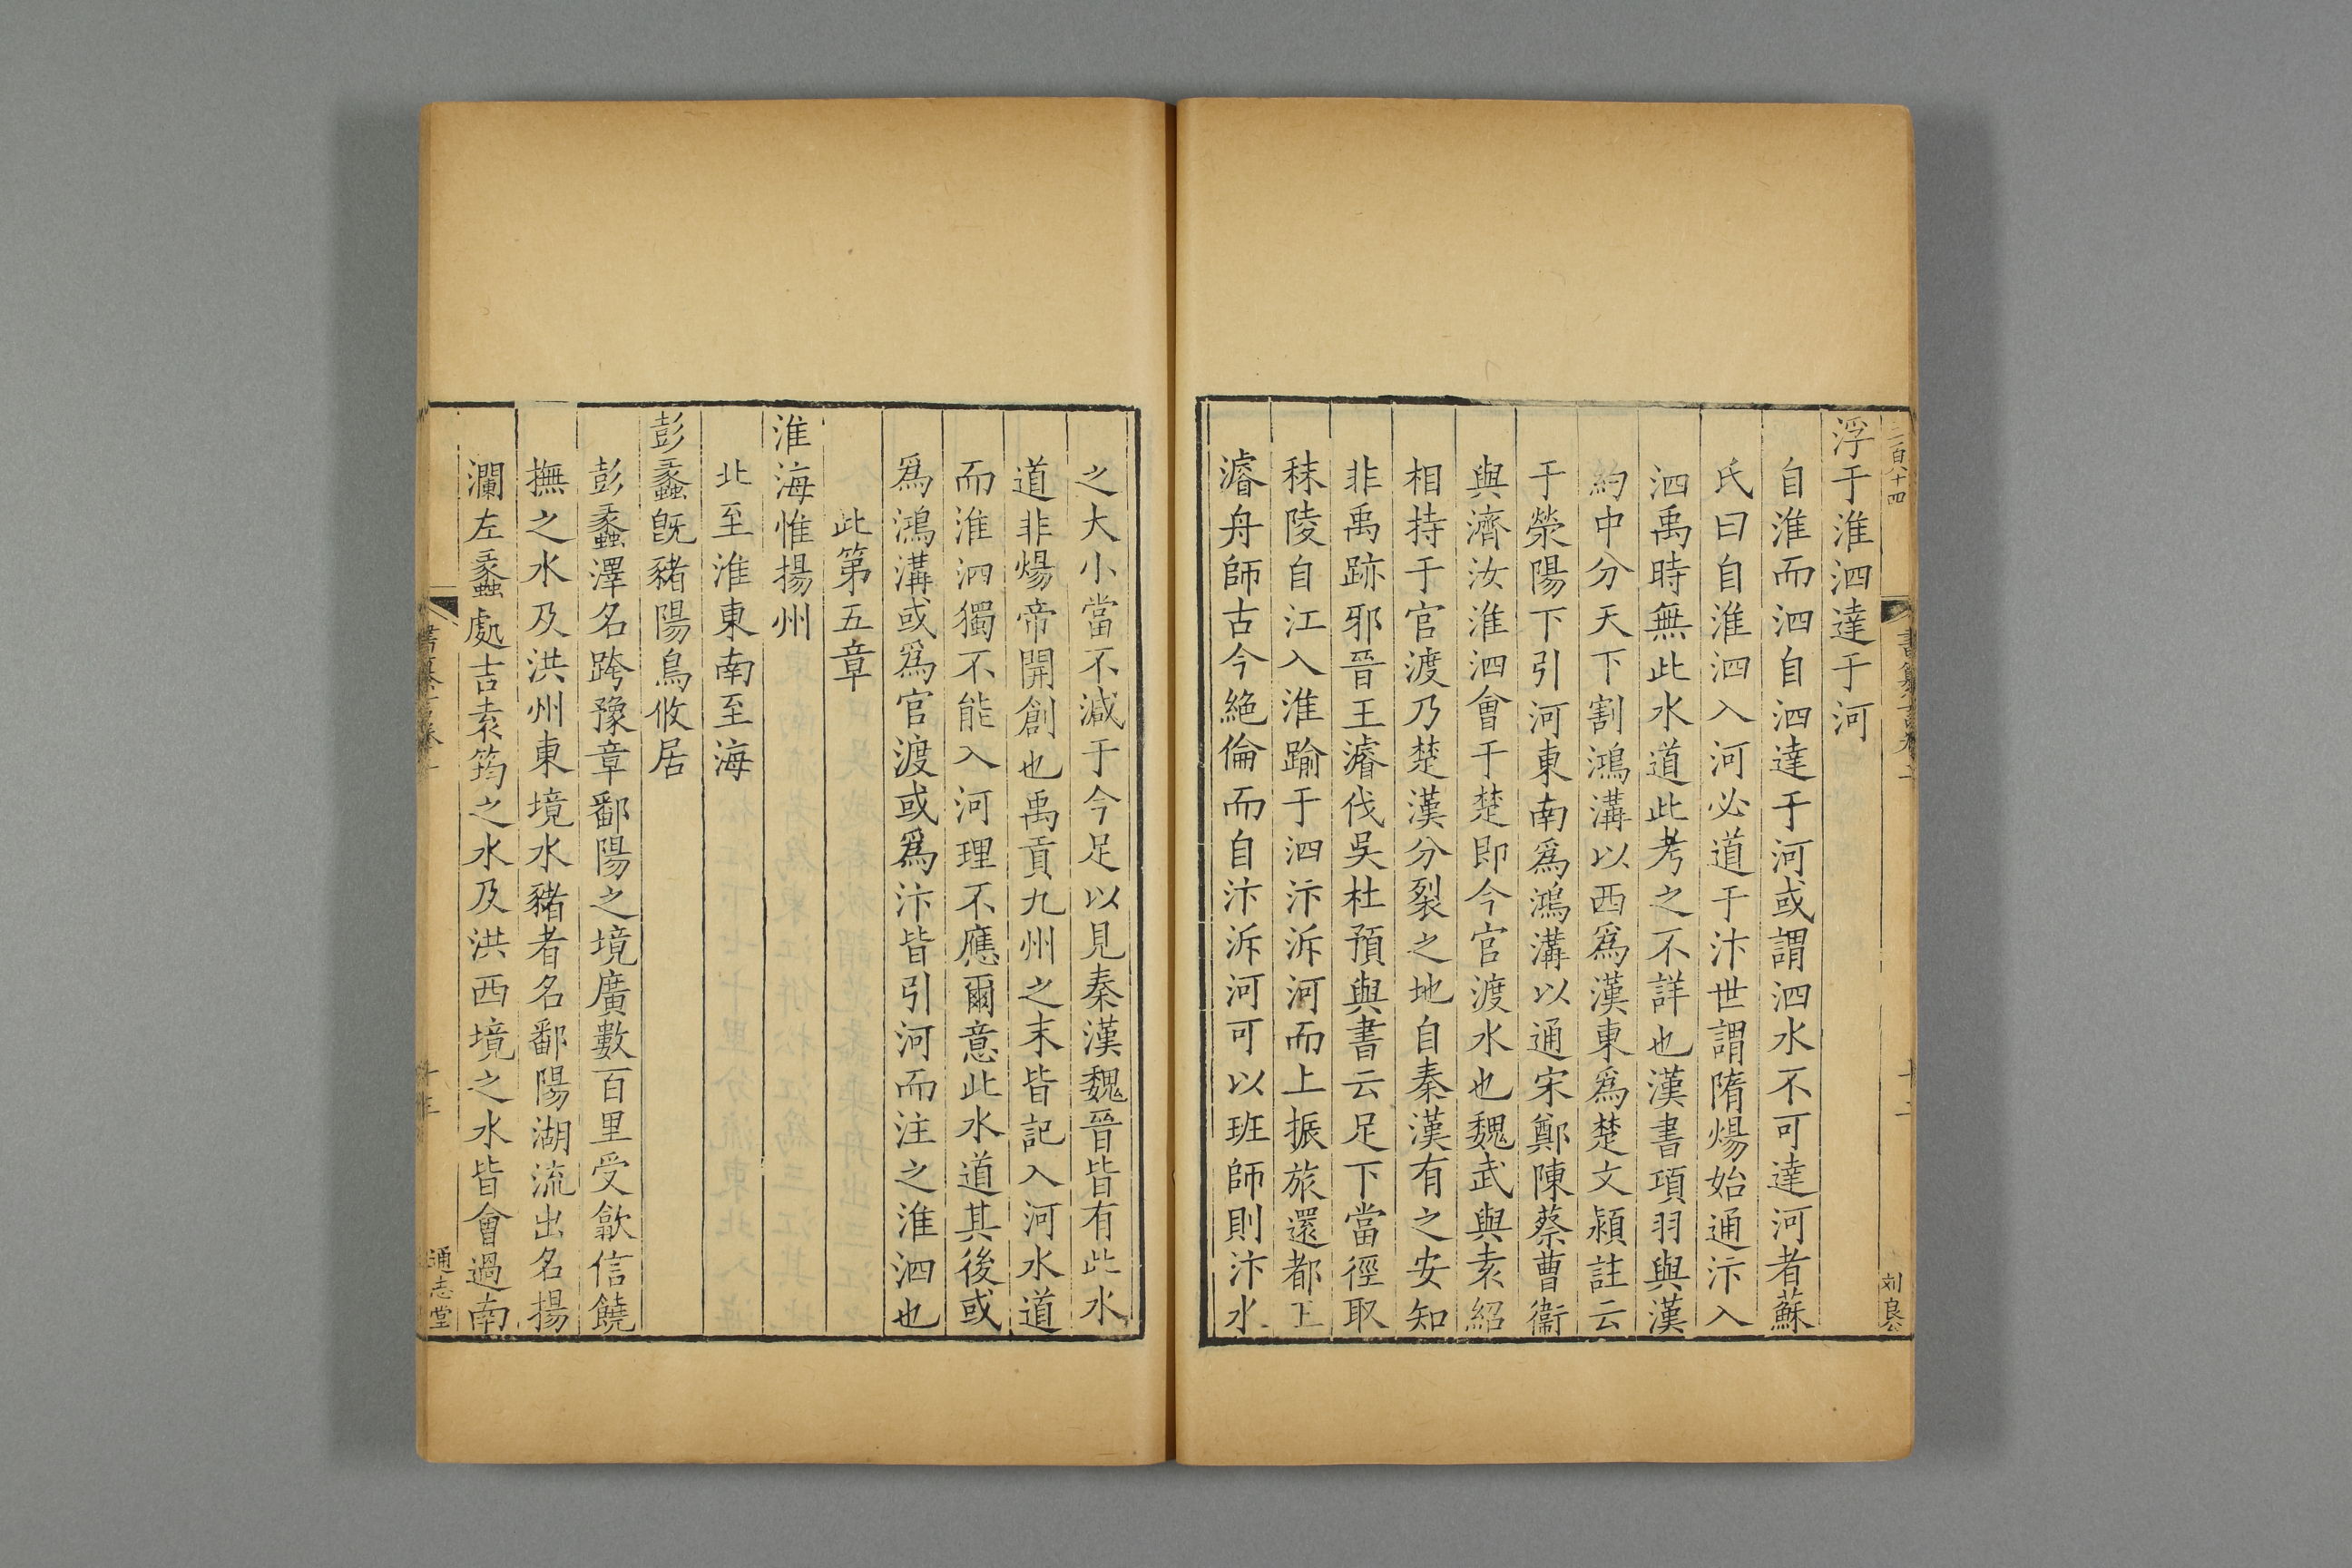 二百八十四
浮于淮泗達于河
自淮而泗自泗達于河或謂泗水不可達河者蘇
氏曰自淮泗入河必道于汴世謂隋煬始通汴入
泗禹時無此水道此考之不詳也漢書項羽與漢
約中分天下割鴻溝以西爲漢東爲楚文潁註云
于滎陽下引河東南爲鴻溝以通宋鄭陳蔡曹衞
與濟汝淮泗會于楚即今官渡水也魏武與袁紹
相持于官渡乃楚漢分裂之地自秦漢有之安知
非禹跡邪晉王濬伐吳杜預與書云足下當徑取
秣陵自江入淮踰于泗汴泝河而上振旅還都王
濬舟師古今絶倫而自汴泝河可以班師則汴水
之大小當不減于今足以見秦漢魏晉皆有此水
道非煬帝開創也禹貢九州之末皆記入河水道
而淮泗獨不能入河理不應爾意此水道其後或
爲鴻溝或爲官渡或爲汴皆引河而注之淮泗也
此第五章
淮海惟揚州
北至淮東南至海
彭蠡旣豬陽鳥攸居
彭蠡澤名跨豫章鄱陽之境廣數百里受歙信饒
撫之水及洪州東境水豬者名鄱陽湖流出名揚
瀾左蠡處吉袁筠之水及洪西境之水皆會過南
通志堂